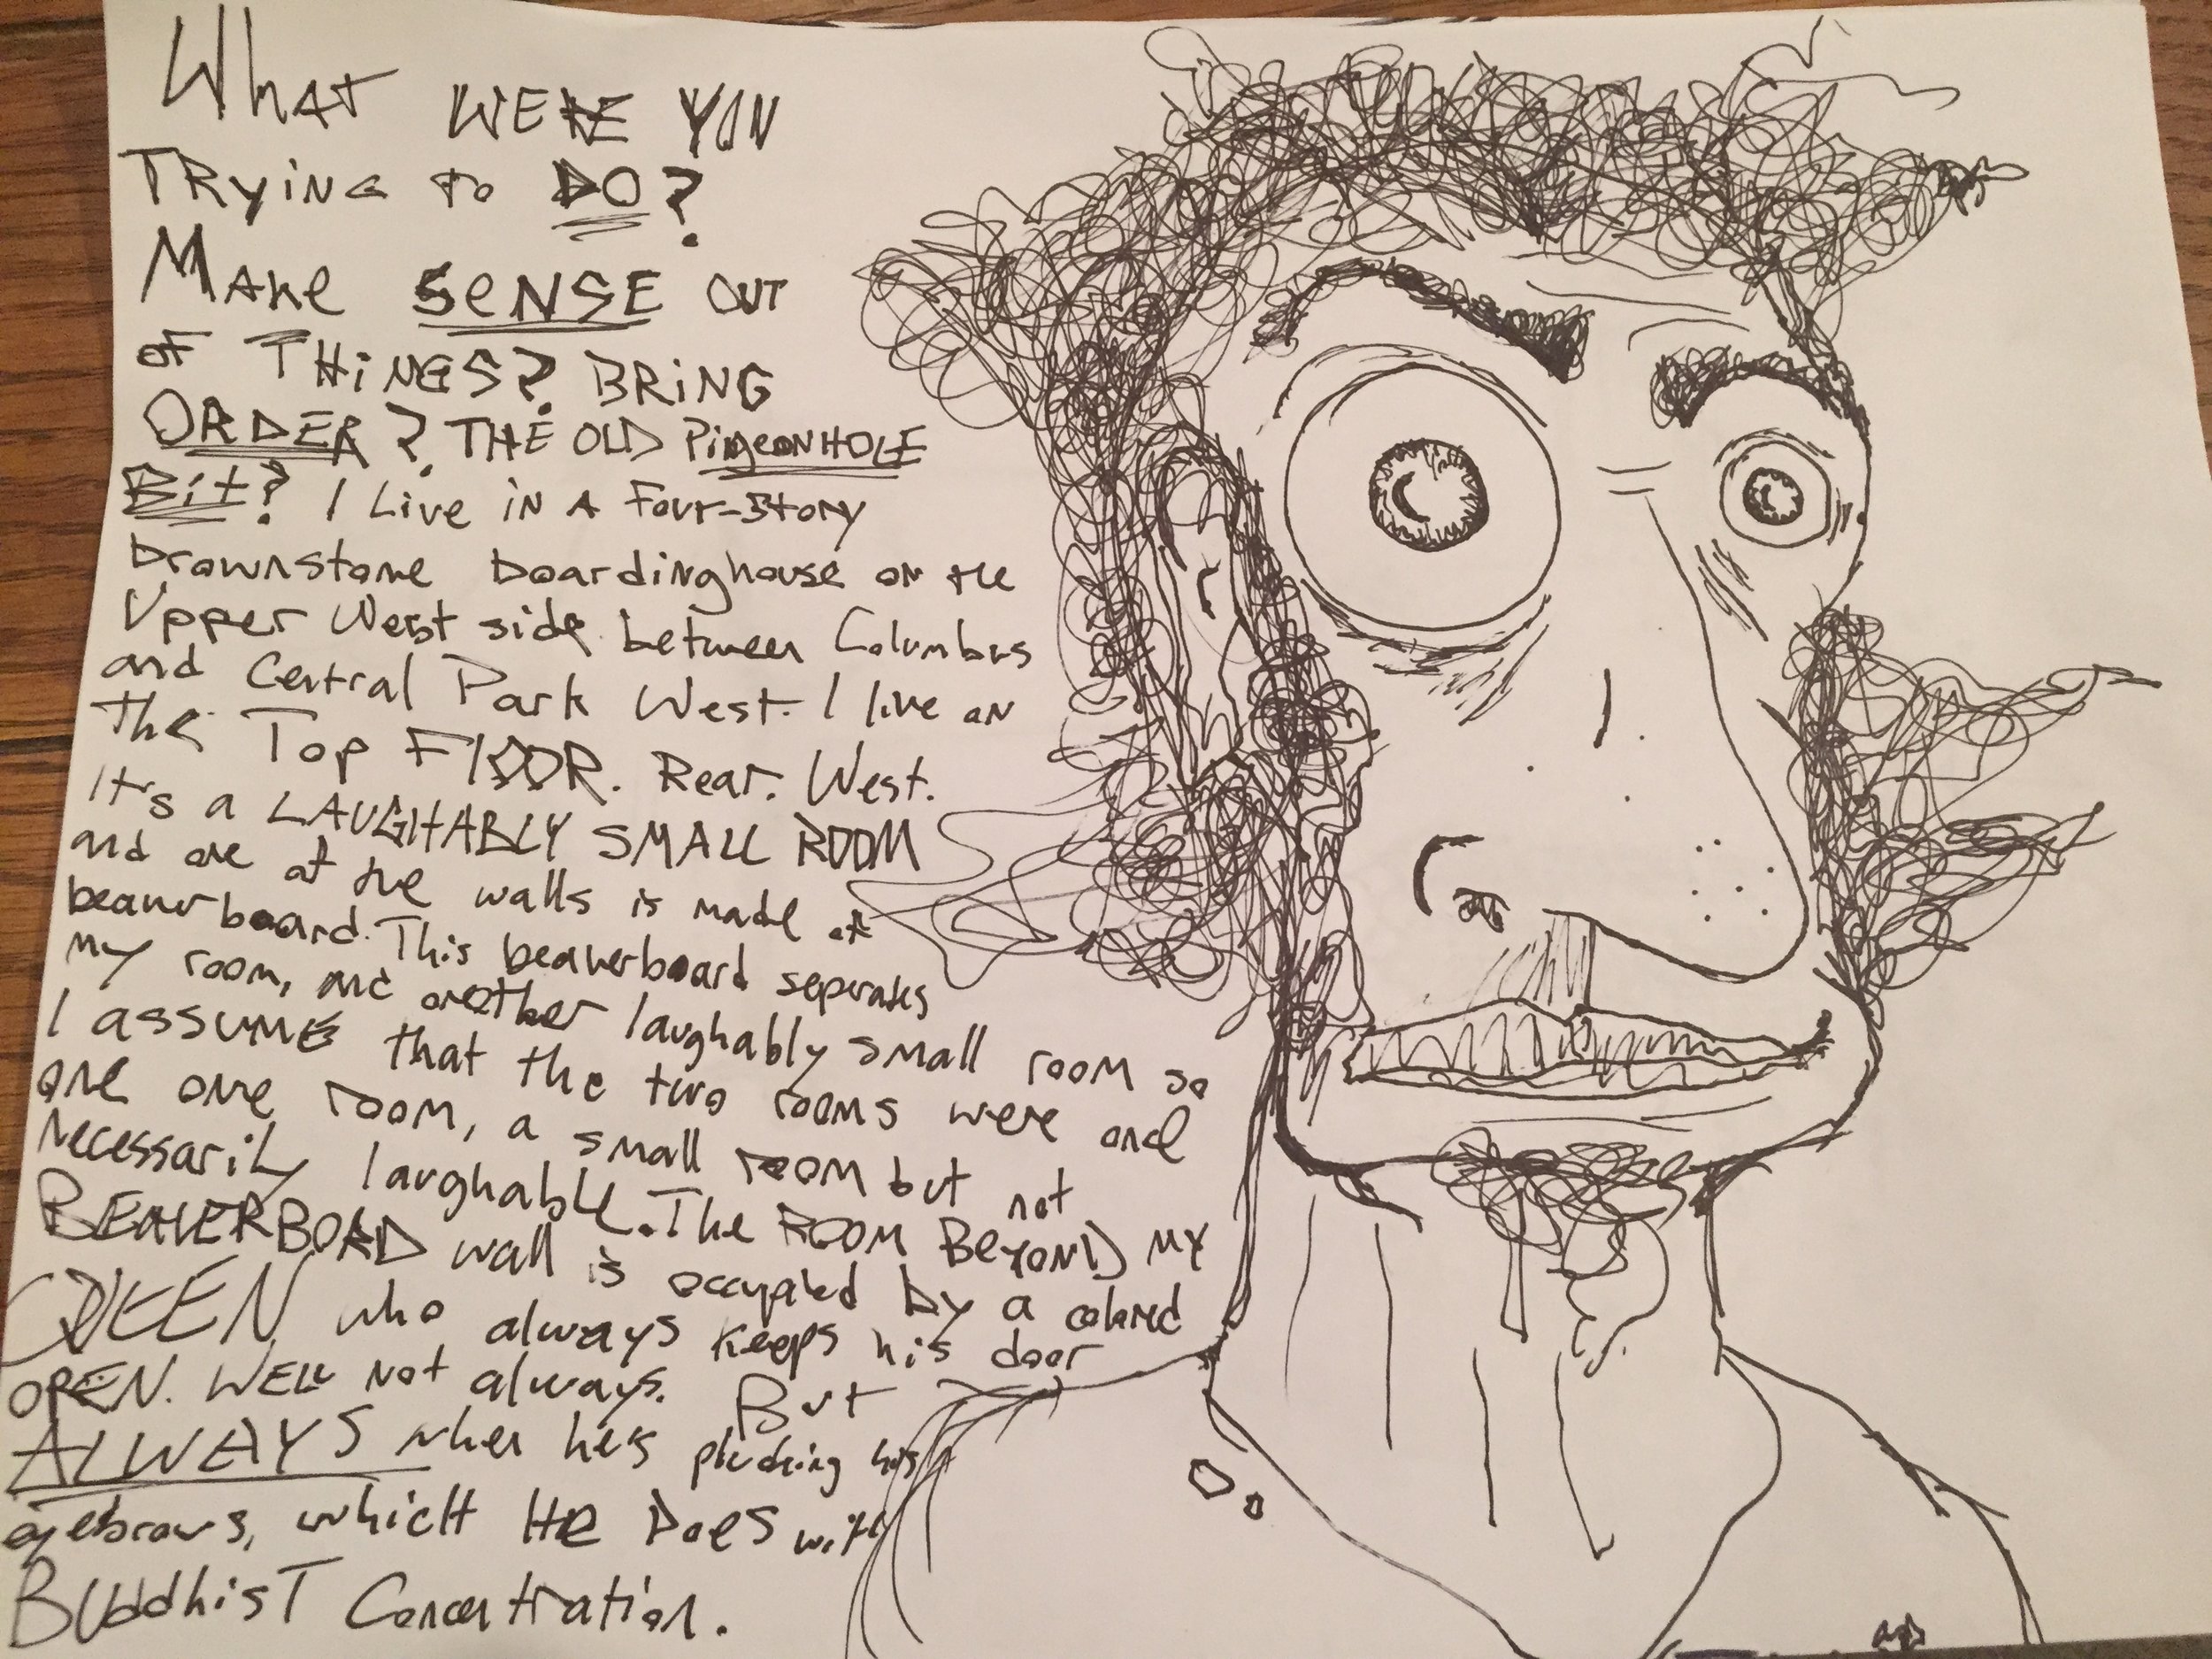 WhAT WERE YOU
TRyiNG to DO?
MAKe SeNSE OUT
OF THiNGS? BRiNG
ORDER? THE OLD PigeonHOLE
Bit? I Live iN A Four-Story
brownstone boardinghouse on the
Upper West side between Columbus
and Central Park West. I live on
the Top FlOOR. Rear. West.
It's a LAUGHABLY SMALL ROOM
and one of the walls is made of
beaverboard. This beaverboard seperates
my room, and another laughably small room so
I ASSUME that the two rooms were once
one room, a small room but not
Necessarily laughable. The ROOM BeYOND MY
BEAVERBOARD wall is occupied by a colored
QUEEN who always keeps his door
OPEN. WELL Not always. But
ALWAYS when he's plucking his
eyebrows, whicH He DoeS with
BUddhisT Concentration.